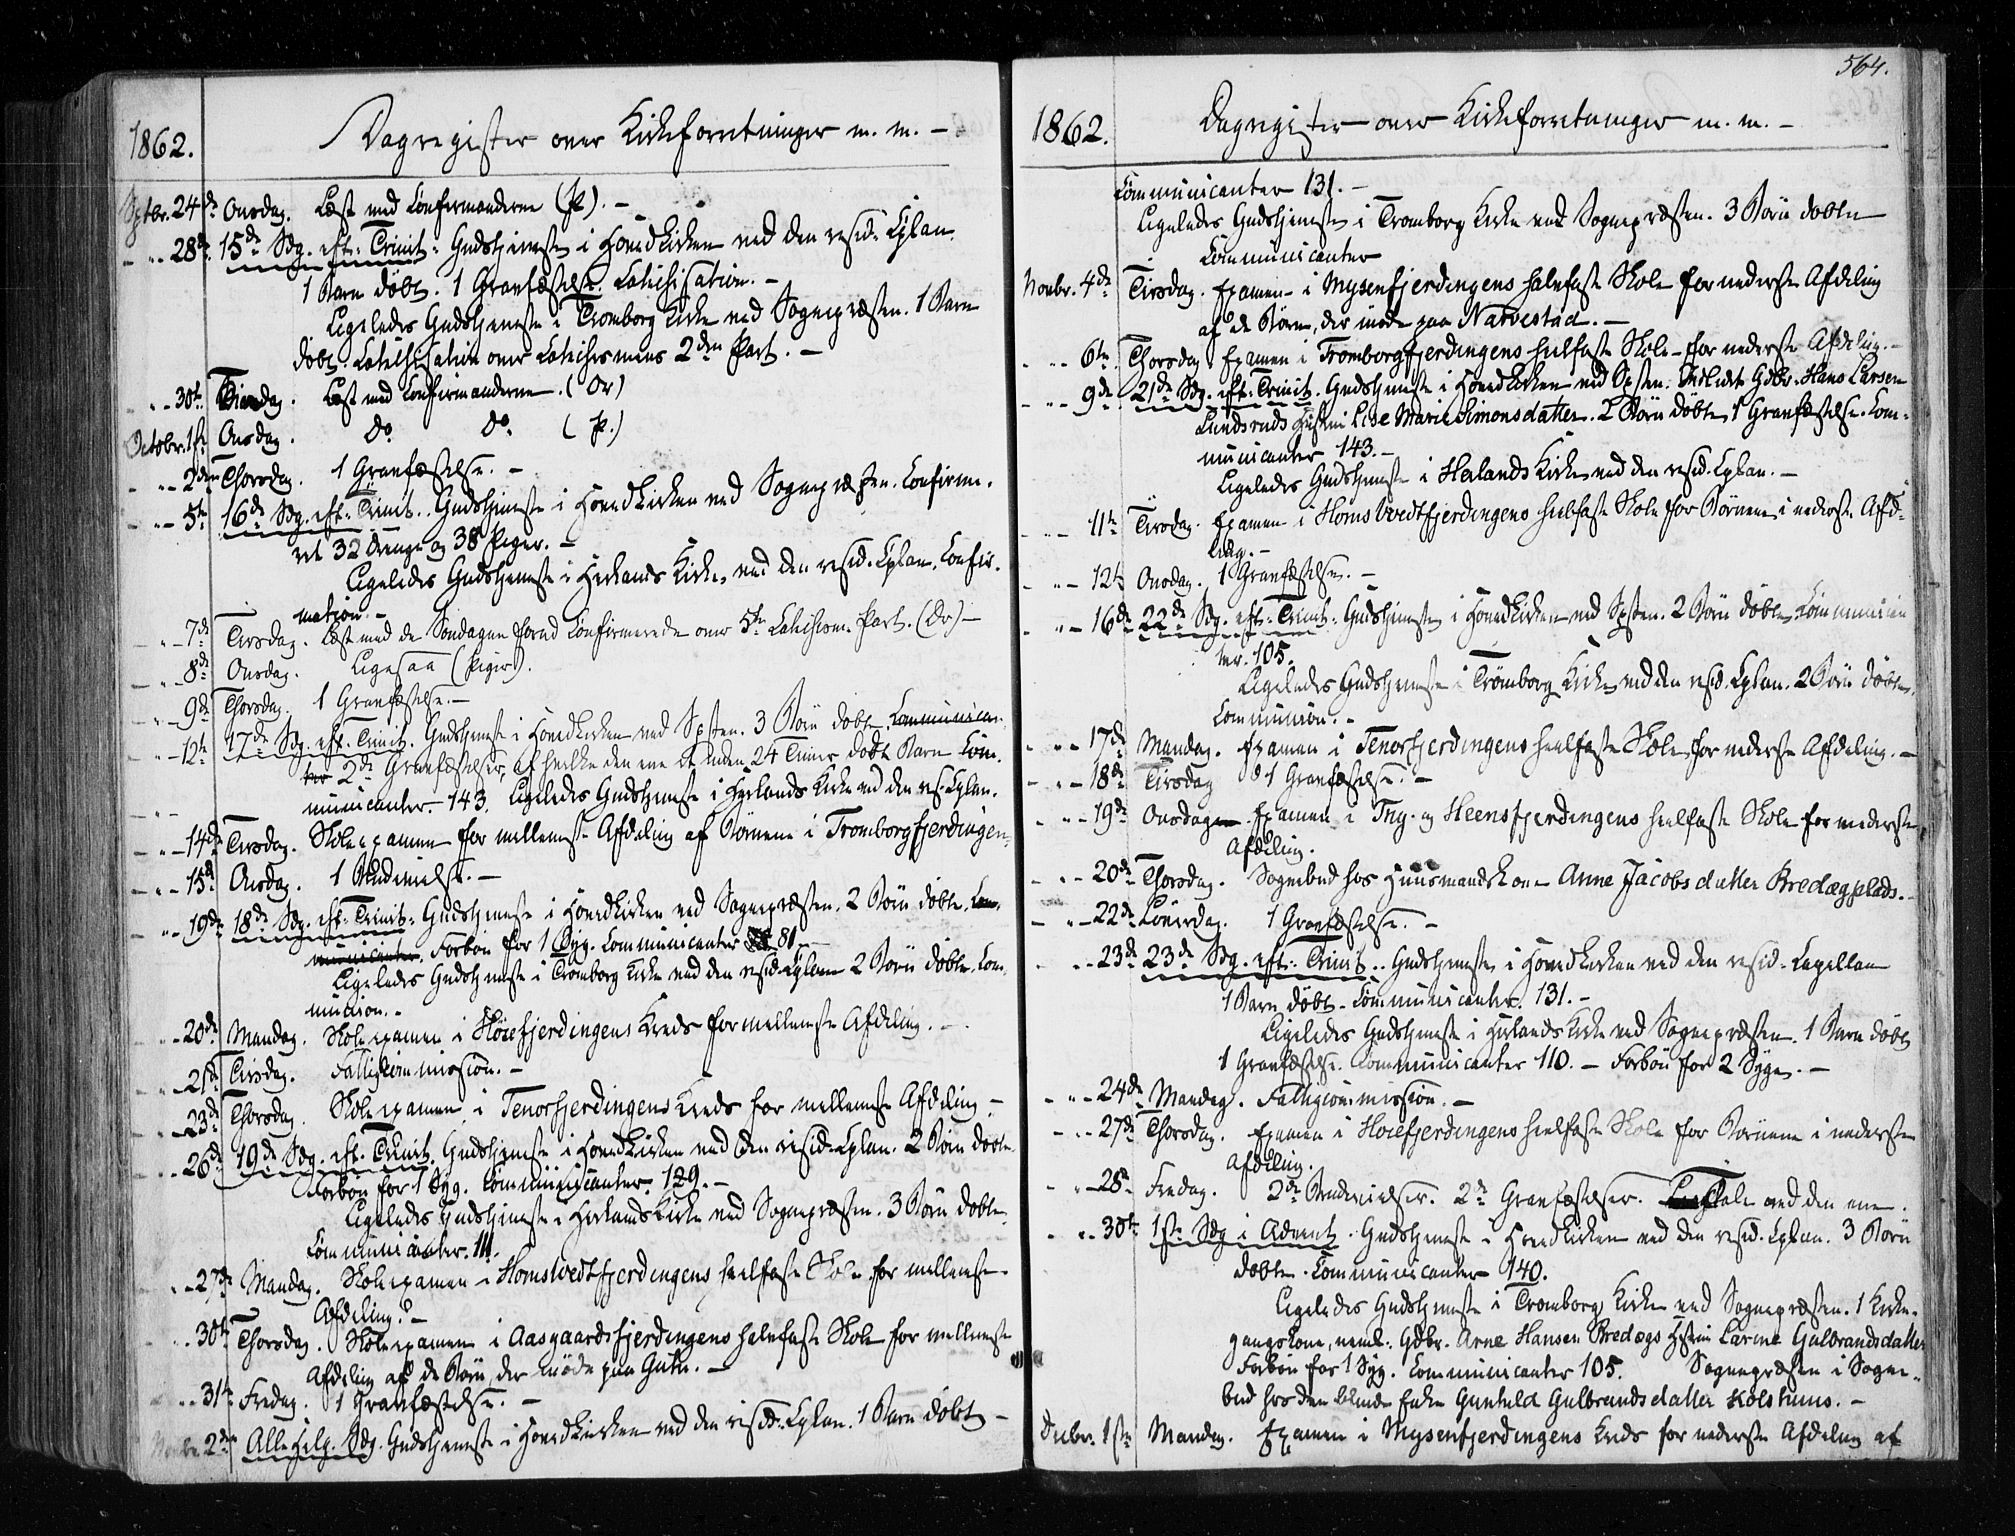 1862.
Dagregister over Kirkeforretninger m. m. –
Sptbr. 24de Onsdag. Læst med Confirmanderne (P.). –
– „ – 28de 15de Sdg. eft. Trinit. Gudstjeneste i Hovedkirken ved den resid. Cplan.
1 Barn døbt. 1 Gravfæstelse. Catechisation. –
Ligeledes Gudstjeneste i Tromborg Kirke ved Sognepræsten. 1 Barn
døbt. Catechisation over Catechismens 2den Part. –
– „ – 30te Tirsdag. Læst med Confirmanderne. (Dr)
Octobr. 1ste Onsdag. do do. (P.)
– „ – 2den Thorsdag. 1 Gravfæstelse. –
– „ – 5te 16de Sdg. eft. Trinit. Gudstjeneste i Hovedkirken ved Sognepræsten. Confirme-
ret 32 Drenge og 38 Piger. –
Ligeledes Gudstjeneste i Herlands Kirke, ved den resid. Cplan. Confir-
mation. –
– „ – 7de Tirsdag. Læst med de Søndagen forud Confirmerede over 5te Catechism. Part. (Dr) –
– „ – 8de Onsdag. Ligesaa (Piger).
– „ – 9de Thorsdag. 1 Gravfæstelse. –
– „ – 12te 17de Sdg. eft. Trinit. Gudstjeneste i Hovedkirken ved Spsten. 3 Børn døbte. Communican-
ter 2de Gravfæstelser, af hvilke den ene et inden 24 Timer dødt Barn. Com-
municanter. 143. Ligeledes Gudstjeneste i Herlands Kirke ved den res. Cplan.
– „ – 14de Tirsdag. Skoleexamen for mellemste Afdeling af Børnene i Tromborgfjerdingen.
– „ – 15de Onsdag. 1 Brudevielse. –
– „ – 19de 18de Sdg. eft. Trinit. Gudstjeneste i Hovedkirken ved Sognepræsten. 2 Børn døbte. Com-
municanter. Forbøn for 1 Syg. Communicanter 81. –
Ligeledes Gudstjeneste i Tromborg Kirke ved den resid. Cplan 2 Børn døbte. Com-
munion. –
– „ – 20de Mandag. Skoleexamen i Høiefjerdingens Kreds for mellemste Afdeling. –
– „ – 21de Tirsdag. Fattigkommission. –
– „ – 23de Thorsdag. Skoleexamen i Tenorfjerdingens Kreds for mellemste Afdeling –
– „ – 26de 19de Sdg. eft. Trinit. Gudstjeneste i Hovedkirken ved den resid. Cplan. 2 Børn døbte.
Forbøn for 1 Syg. Communicanter. 129. –
Ligeledes Gudstjeneste i Herlands Kirke ved Sognepræsten. 3 Børn døbte.
Communicanter. 111.
– „ – 27de Mandag. Skoleexamen i Homstvedtfjerdingens heelfaste Skole for mellemste
Afdeling. –
„ 30te Thorsdag. Skoleexamen i Aasgaardsfjerdingens halvfaste Skole for mellemste
Afdeling af de Børn, der møde paa Gutu. –
„ 31te Fredag. 1 Gravfæstelse. –
Novbr. 2den Alle Helg. Sdg. Gudstjeneste i Hovedkirken ved den resid. Cplan. 1 Barn døbt –
564.
1862.
Dagregister over Kirkeforretninger m. m. –
Communicanter 131. –
Ligeledes Gudstjeneste i Tromborg Kirke ved Sognepræsten. 3 Børn døbte
Communicanter
Novbr. 4de Tirsdag. Examen i Mysenfjerdingens halvfaste Skole for nederste Afdeling
af de Børn, der møde paa Narvestad. –
– „ – 6te Thorsdag. Examen i Tromborgfjerdingens heelfaste Skole for nederste Afdeling. –
– „ – 9de 21de Sdg. eft. Trinit. Gudstjeneste i Hovedkirken ved Spsten. Indledt Gdbr. Hans Larsen
Lundsruds Hustru Lise Marie Simonsdatter. 2 Børn døbte, 1 Gravfæstelse. Com-
municanter 143. –
Ligeledes Gudstjeneste i Herlands Kirke ved den resid. Cplan. –
– „ – 11te Tirsdag. Examen i Homstvedtfjerdingens heelfaste Skole for Børnene i nederste Afde-
ling. –
– „ – 12te Onsdag. 1 Gravfæstelse. –
– „ – 16de 22de Sdg. eft. Trinit. Gudstjeneste i Hovedkirken ved Spsten. 2 Børn døbte, Communican
ter. 105.
Ligeledes Gudstjeneste i Trømborg Kirke ved den resid. Cplan. 2 Børn døbte,
Communion. –
– „ – 17de Mandag. Examen i Tenorfjerdingens heelfaste Skole for nederste Afdeling. –
– „ – 18de Tirsdag 1 Gravfæstelse. –
– „ – 19de Onsdag Examen i Trig. og Heensfjerdingens heelfaste Skole for nederste
Afdeling.
– „ – 20de Thorsdag. Sognebud hos Huusmandskone Anne Jacobsdatter Bredægplads. –
– „ – 22de Løverdag. 1 Gravfæstelse. –
„ 23de 23de Sdg. eft. Trinit. Gudstjeneste i Hovedkirken ved den resid. Capellan
1 Barn døbt. Communicanter. 131. –
Ligeledes Gudstjeneste i Herlands Kirke ved Sognepræsten. 1 Barn døbt
1 Gravfæstelse. Communicanter 110. – Forbøn for 2 Syge. –
– „ – 24de Mandag. Fattigcommission. –
– „ – 27de Thorsdag. Examen i Høiefjerdingens heelfaste Skole for Børnene i nederste
Afdeling.
– „ – 28de Fredag. 2de Brudevielser. 2de Gravfæstelser. Ligtale ved den ene.
„ 30te 1ste Sdg i Advent. Gudstjeneste i Hovedkirken ved den resid. Cplan. 3 Børn
døbte. Communicanter 140.
Ligeledes Gudstjeneste i Tromborg Kirke ved Sognepræsten. 1 Kirke-
gangskone, neml. Gdbr. Arne Hansen Bredægs Hustru Larine Gulbrandsdatter
Forbøn for 1 Syg. Communicanter 105. Sognepræsten i Sogne-
bud hos den blinde Enke Gunhild Gulbrandsdatter Kolstuns. –
Decbr. 1ste Mandag. Examen i Mysenfjerdingens Kreds for nederste Afdeling af